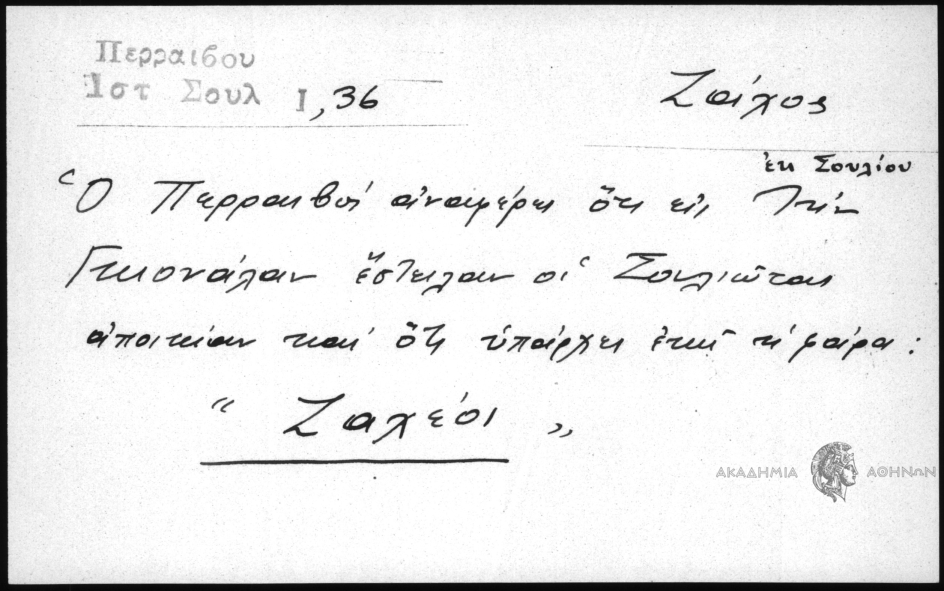 Περραιβου
Ιστ Σουλ Ι, 36
Ζάχος
ἐκ Σουλίου
Ὁ Περραιβός ἀναφέρει ὅτι εἰς τήν
Γκιονάλαν ἔστειλαν οἱ Σουλιῶται
ἀποικίαν καί ὅτι ὑπάρχει ἐκεῖ ἡ φάρα:
"Ζαχέοι"
ΑΚΑΔΗΜΙΑ ΑΘΗΝΩΝ